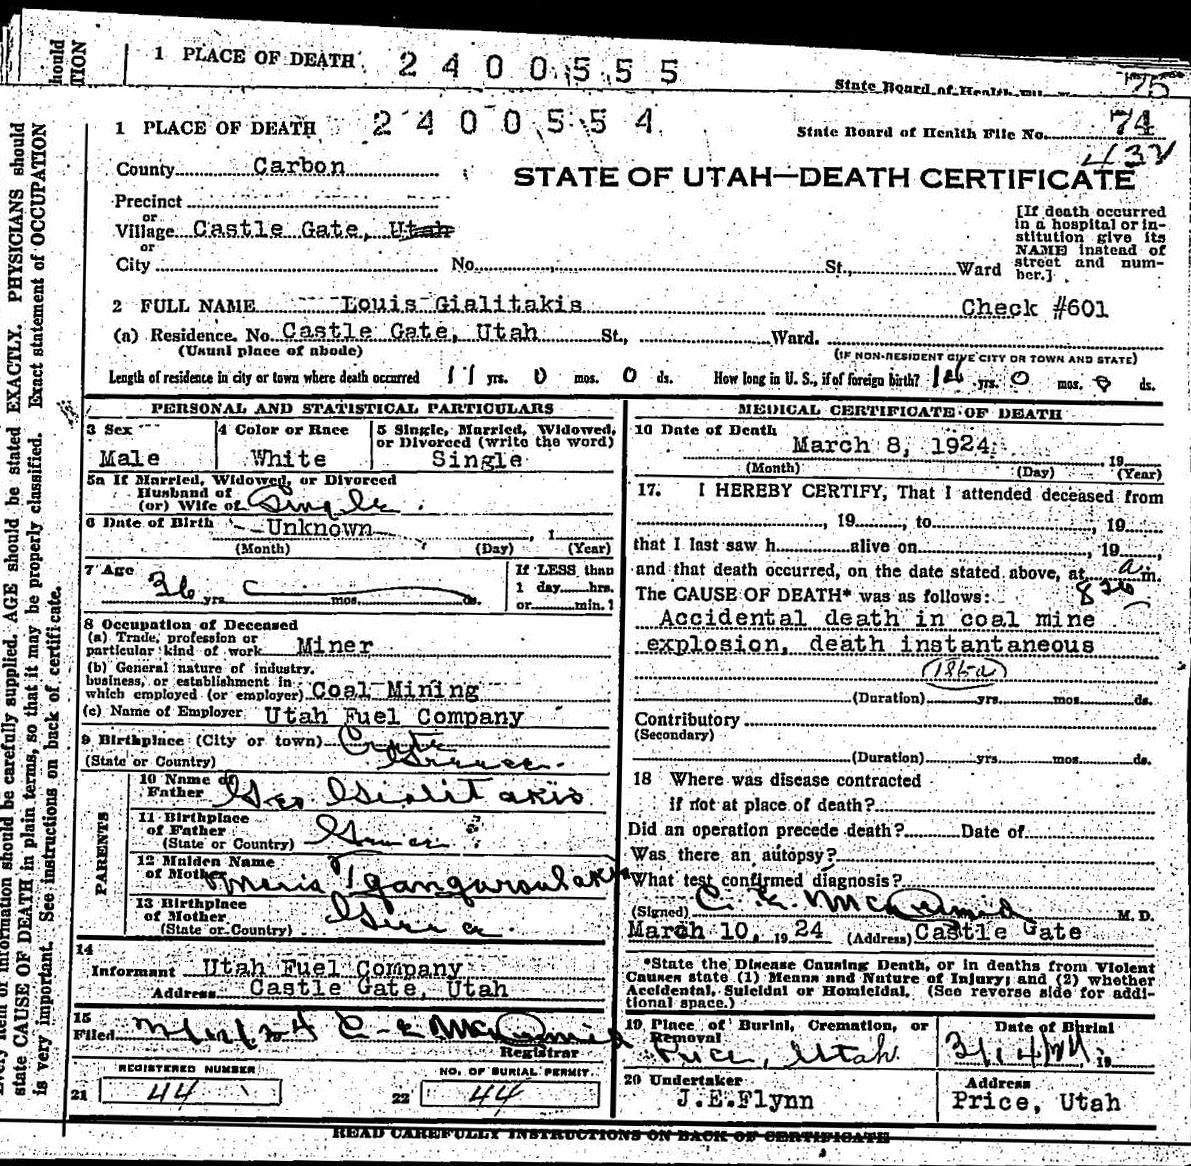 hould
TION
1 PLACE OF DEATH 2400555
State Board of Health
75
1 PLACE OF DEATH 2400554
State Board of Health File No. 74
432
County Carbon
STATE OF UTAH—DEATH CERTIFICATE
Precinct
or
Village Castle Gate, Utah
or
City No. St., Ward
[If death occurred
in a hospital or in-
stitution give its
NAME instead of
street and num-
ber.]
2 FULL NAME Louis Gialitakis Check #601
(a) Residence. No. Castle Gate, Utah St., Ward.
(Usual place of abode) (IF NON-RESIDENT GIVE CITY OR TOWN AND STATE)
Length of residence in city or town where death occurred 11 yrs. 0 mos. 0 ds. How long in U. S., if of foreign birth? yrs. 0 mos. 0 ds.
PERSONAL AND STATISTICAL PARTICULARS
3 Sex 4 Color or Race 5 Single, Married, Widowed,
or Divorced (write the word)
Male White Single
5a If Married, Widowed, or Divorced
Husband of
(or) Wife of Single
6 Date of Birth Unknown , 1
(Month) (Day) (Year)
7 Age 36 yrs. mos. ds.
If LESS than
1 day hrs.
or min.?
8 Occupation of Deceased
(a) Trade, profession or
particular kind of work Miner
(b) General nature of industry.
business, or establishment in
which employed (or employer) Coal Mining
(c) Name of Employer Utah Fuel Company
9 Birthplace (City or town) Crete
(State or Country) Greece
PARENTS
10 Name of
Father Geo Gialitakis
11 Birthplace
of Father
(State or Country) Greece
12 Maiden Name
of Mother Maria
13 Birthplace
of Mother
(State or Country) Greece
14
Informant Utah Fuel Company
Address Castle Gate, Utah
15
Filed 24 C. E. McDermid
Registrar
REGISTERED NUMBER
21 44
NO. OF BURIAL PERMIT.
22 44
MEDICAL CERTIFICATE OF DEATH
16 Date of Death
March 8, 1924 19
(Month) (Day) (Year)
17. I HEREBY CERTIFY, That I attended deceased from
, 19 , to , 19
that I last saw h alive on , 19 ,
and that death occurred, on the date stated above, at a m.
The CAUSE OF DEATH* was as follows: 820
Accidental death in coal mine
explosion, death instantaneous
(Duration) yrs. mos. ds.
Contributory
(Secondary)
(Duration) yrs. mos. ds.
18 Where was disease contracted
if not at place of death?
Did an operation precede death? Date of
Was there an autopsy?
What test confirmed diagnosis?
(Signed) C. E. McDermid M. D.
March 10, 19 24 (Address) Castle Gate
*State the Disease Causing Death, or in deaths from Violent
Causes state (1) Means and Nature of Injury; and (2) whether
Accidental, Suicidal or Homicidal. (See reverse side for addi-
tional space.)
19 Place of Burial, Cremation, or
Removal
Price, Utah
Date of Burial
3/14/24 19
20 Undertaker
J.E.Flynn
Address
Price, Utah
READ CAREFULLY INSTRUCTIONS ON BACK OF CERTIFICATE
information should be carefully supplied. AGE should be stated EXACTLY. PHYSICIANS should
state CAUSE OF DEATH in plain terms, so that it may be properly classified. Exact statement of OCCUPATION
is very important. See instructions on back of certificate.